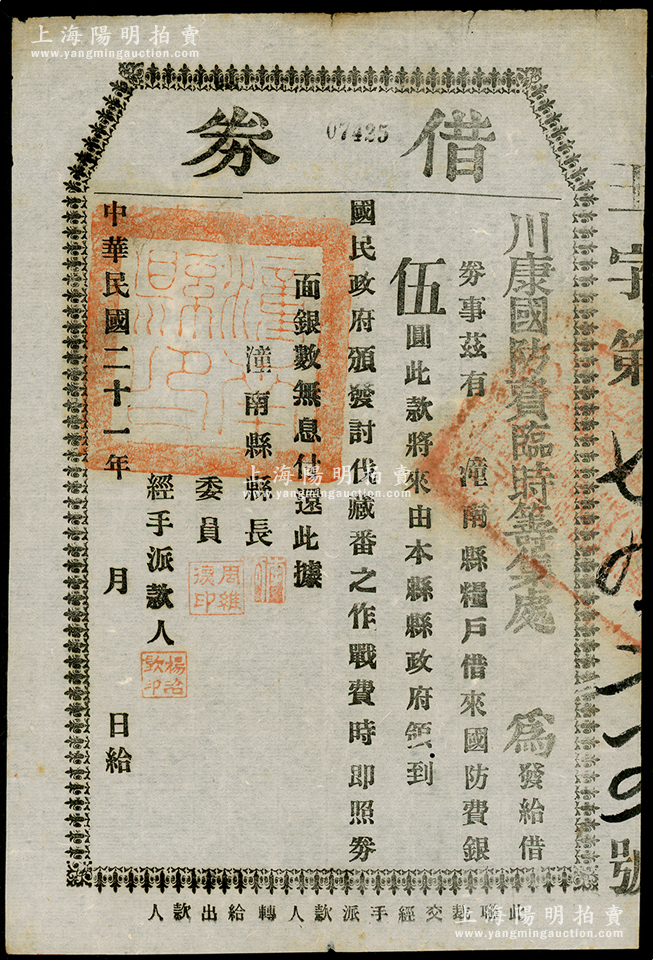 上海陽明拍賣
www.yangmingauction.com
上海陽明拍賣
www.yangmingauction.com
借券
07425
字第
號
川康國防費臨時籌集處為發給借
券事茲有潼南縣糧戶借來國防費銀
伍圓此款將來由本縣縣政府領到
國民政府頒發討伐藏番之作戰費時即照券
面銀數無息付還此據
潼南縣縣長
委員
周維
經手派款人
楊治
中華民國二十一年 月 日給
潼南縣印
此聯裁交經手派款人轉給出款人
上海陽明拍賣
www.yangmingauction.com
上海陽明拍賣
www.yangmingauction.com